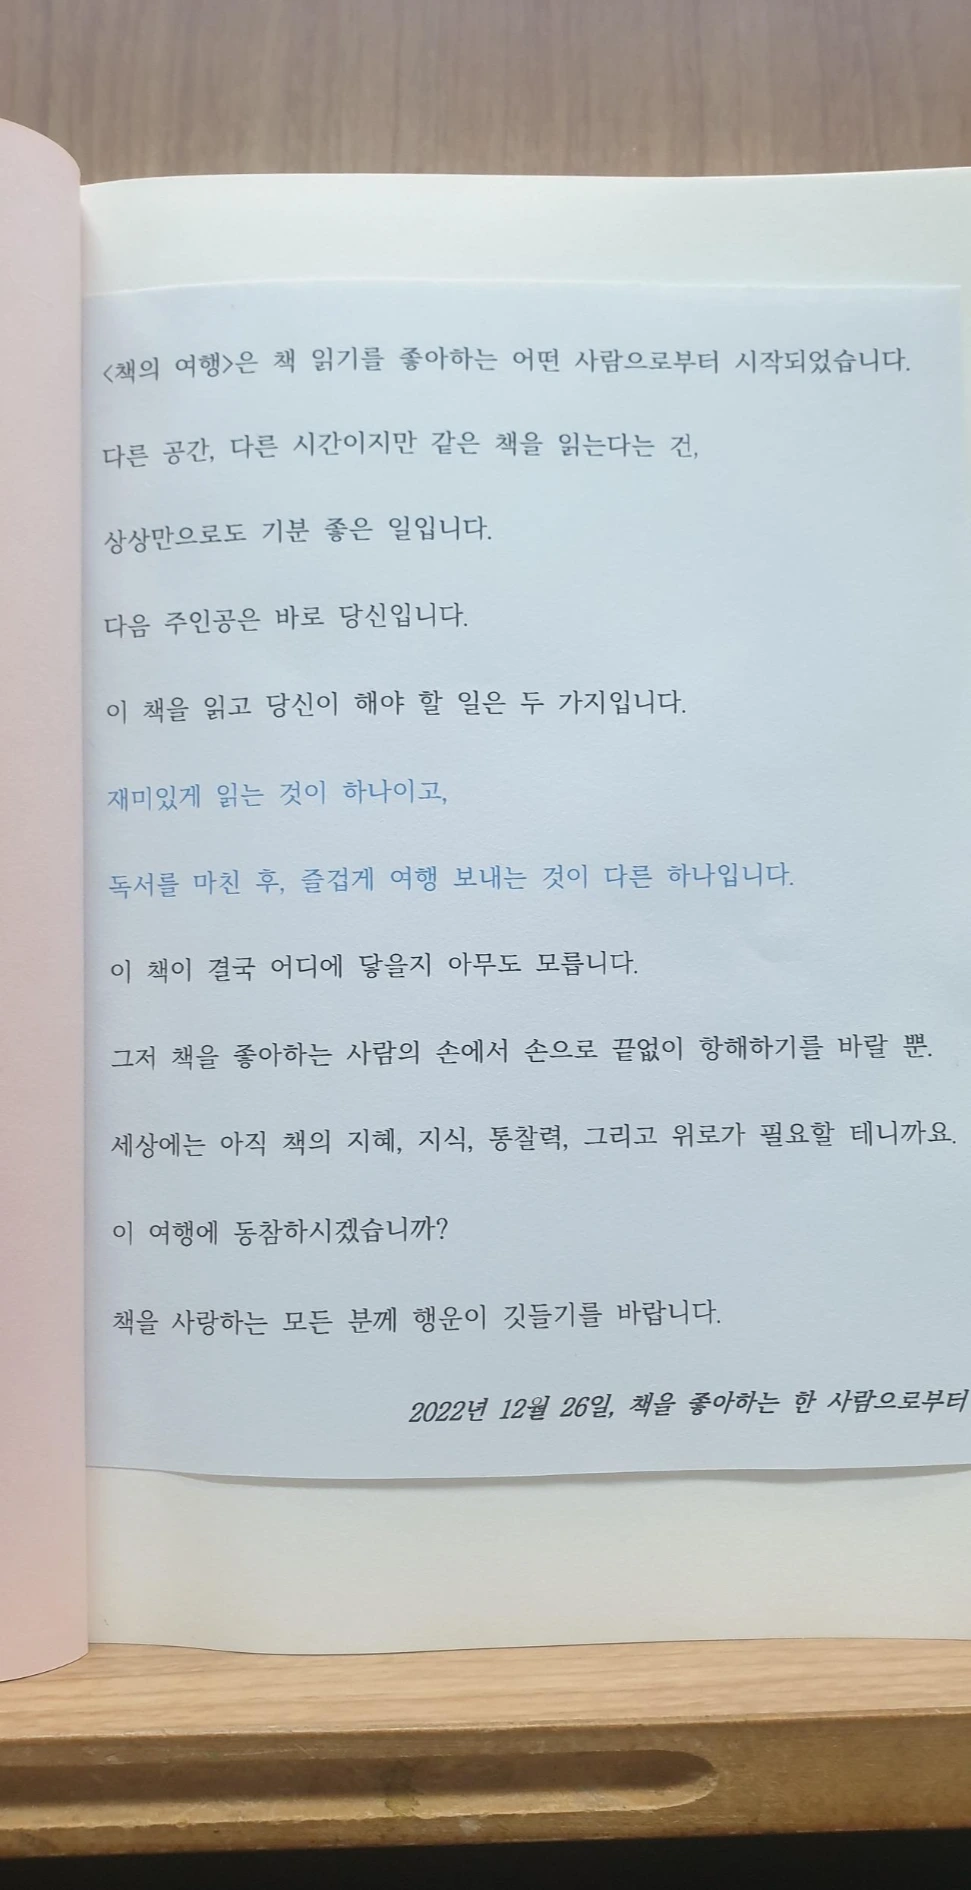 <책의 여행>은 책 읽기를 좋아하는 어떤 사람으로부터 시작되었습니다.
다른 공간, 다른 시간이지만 같은 책을 읽는다는 건,
상상만으로도 기분 좋은 일입니다.
다음 주인공은 바로 당신입니다.
이 책을 읽고 당신이 해야 할 일은 두 가지입니다.
재미있게 읽는 것이 하나이고,
독서를 마친 후, 즐겁게 여행 보내는 것이 다른 하나입니다.
이 책이 결국 어디에 닿을지 아무도 모릅니다.
그저 책을 좋아하는 사람의 손에서 손으로 끝없이 항해하기를 바랄 뿐.
세상에는 아직 책의 지혜, 지식, 통찰력, 그리고 위로가 필요할 테니까요.
이 여행에 동참하시겠습니까?
책을 사랑하는 모든 분께 행운이 깃들기를 바랍니다.
2022년 12월 26일, 책을 좋아하는 한 사람으로부터